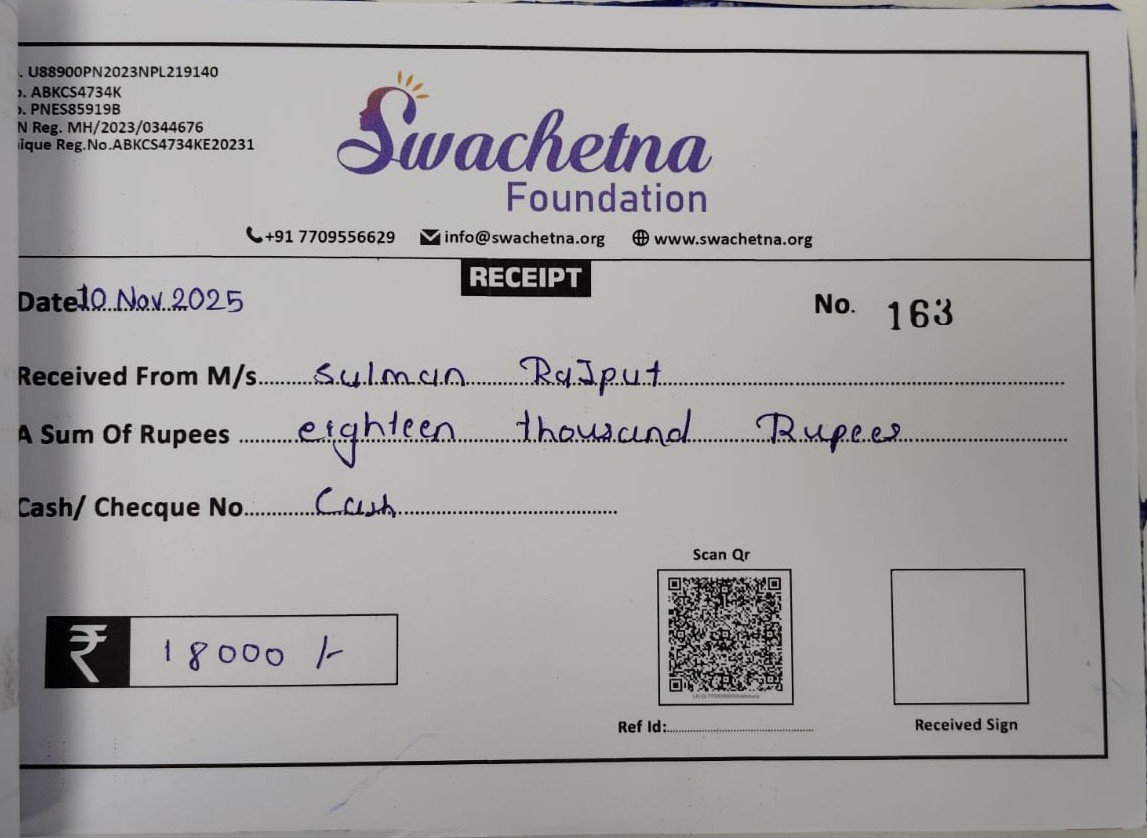 . U88900PN2023NPL219140
o. ABKCS4734K
o. PNES85919B
N Reg. MH/2023/0344676
ique Reg.No.ABKCS4734KE20231
Swachetna
Foundation
+91 7709556629 info@swachetna.org www.swachetna.org
RECEIPT
Date 10 Nov. 2025 No. 163
Received From M/s. Sulman RaJput
A Sum Of Rupees eighteen thousand Rupees
Cash/ Checque No. Cash
Scan Qr
₹ 18000 /-
Ref Id: Received Sign